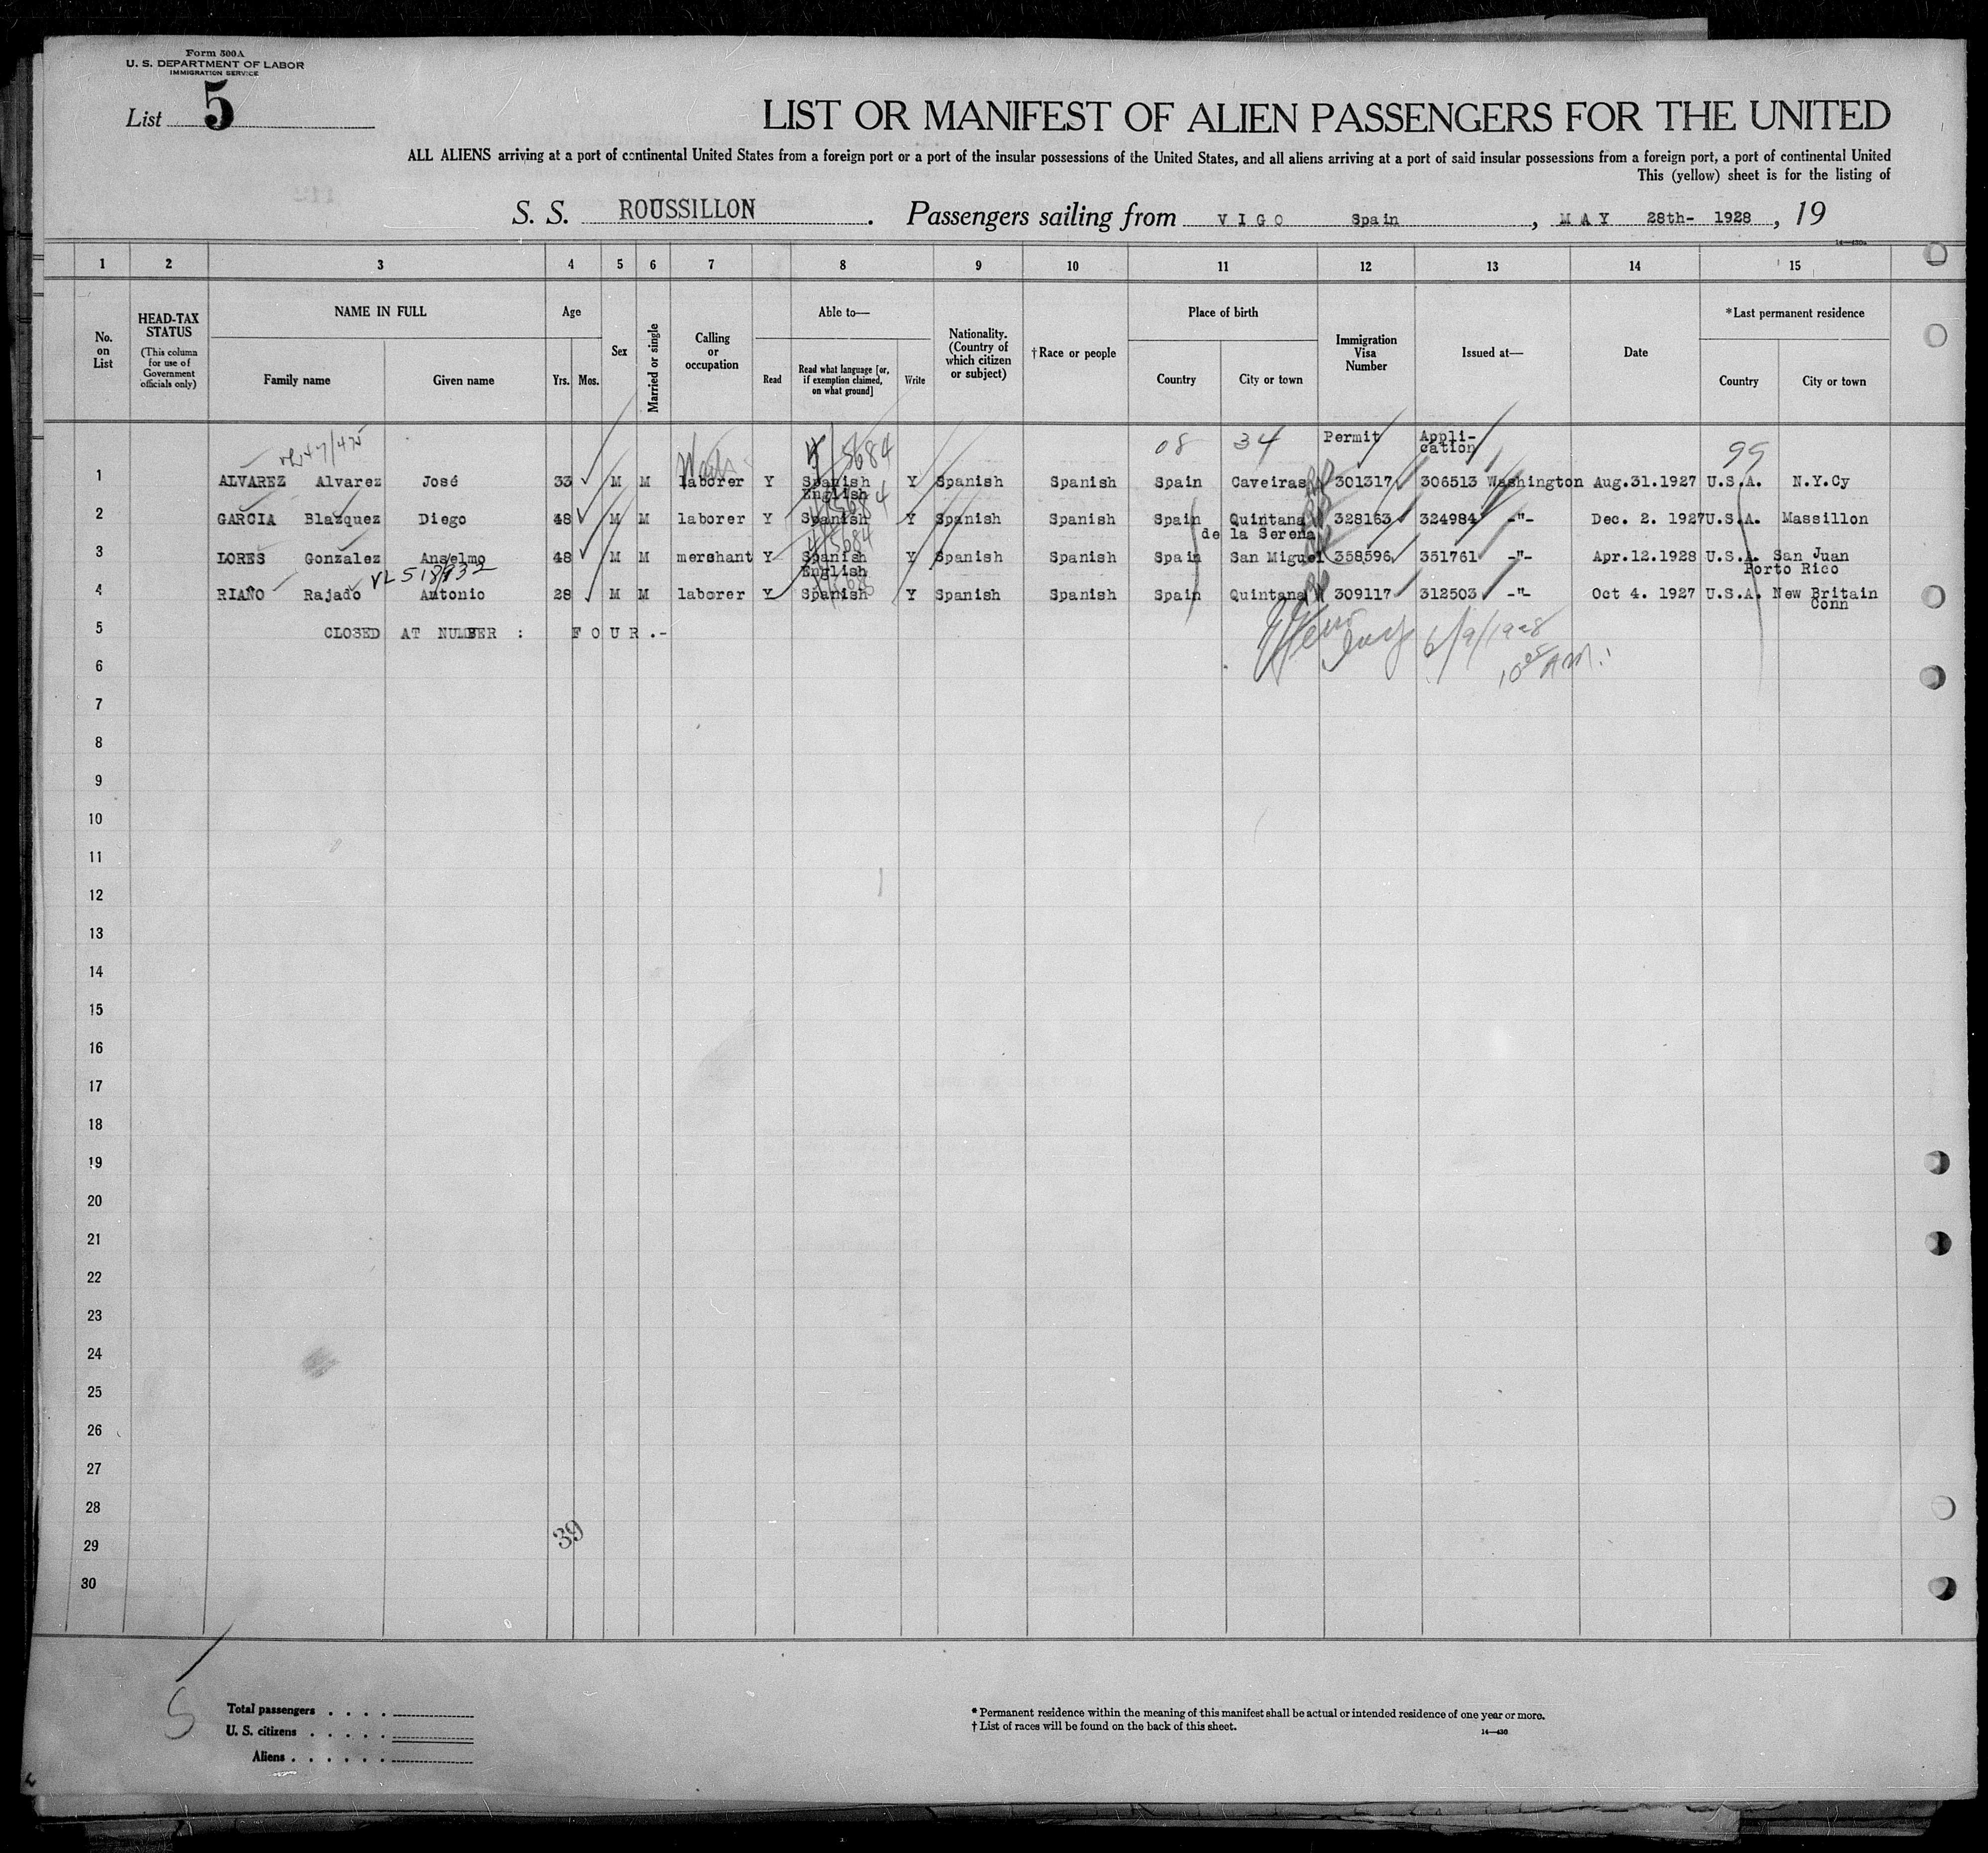 Form 500A
U. S. DEPARTMENT OF LABOR
IMMIGRATION SERVICE
List 5
LIST OR MANIFEST OF ALIEN PASSENGERS FOR THE UNITED
ALL ALIENS arriving at a port of continental United States from a foreign port or a port of the insular possessions of the United States, and all aliens arriving at a port of said insular possessions from a foreign port, a port of continental United
This (yellow) sheet is for the listing of
S. S. ROUSSILLON . Passengers sailing from VIGO Spain , MAY 28th- 1928 , 19
14—430a
1 2 3 4 5 6 7 8 9 10 11 12 13 14 15
No. on List
HEAD-TAX STATUS
(This column for use of Government officials only)
NAME IN FULL
Family name Given name
Age
Yrs. Mos.
Sex
Married or single
Calling or occupation
Able to—
Read
Read what language [or, if exemption claimed, on what ground]
Write
Nationality. (Country of which citizen or subject)
†Race or people
Place of birth
Country City or town
Immigration Visa Number
Issued at—
Date
*Last permanent residence
Country City or town
08 34 Permit Appli-
cation 99
5684
1 ALVAREZ Alvarez José 33 M M laborer Y Spanish Y Spanish Spanish Spain Caveiras 301317 306513 Washington Aug.31.1927 U.S.A. N.Y.Cy
English
2 GARCIA Blazquez Diego 48 M M laborer Y Spanish Y Spanish Spanish Spain Quintana 328163 324984 -"- Dec. 2. 1927 U.S.A. Massillon
de la Serena
3 LORES Gonzalez Anselmo 48 M M merchant Y Spanish Y Spanish Spanish Spain San Miguel 358596 351761 -"- Apr.12.1928 U.S.A. San Juan
English Porto Rico
4 RIAÑO Rajado Antonio 28 M M laborer Y Spanish Y Spanish Spanish Spain Quintana 309117 312503 -"- Oct 4. 1927 U.S.A. New Britain
Conn
5 CLOSED AT NUMBER : FOUR.-
6/9/1928
6
7
8
9
10
11
12
13
14
15
16
17
18
19
20
21
22
23
24
25
26
27
28
39
29
30
5
Total passengers . . . .
U. S. citizens . . . . .
Aliens . . . . . .
* Permanent residence within the meaning of this manifest shall be actual or intended residence of one year or more.
† List of races will be found on the back of this sheet.
14—430